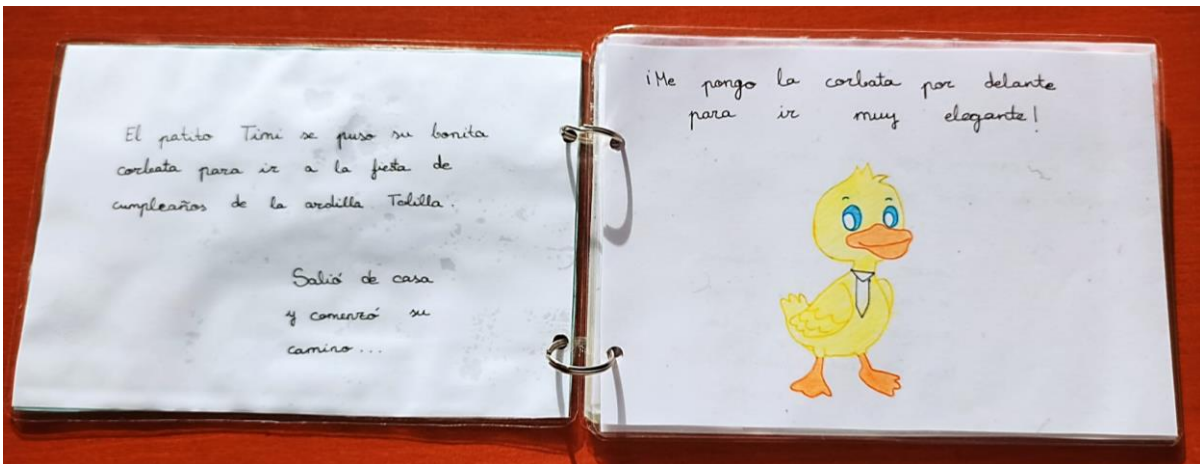 El patito Timi se puso su bonita
corbata para ir a la fiesta de
cumpleaños de la ardilla Tolilla.
Salió de casa
y comenzó su
camino...
¡Me pongo la corbata por delante
para ir muy elegante!